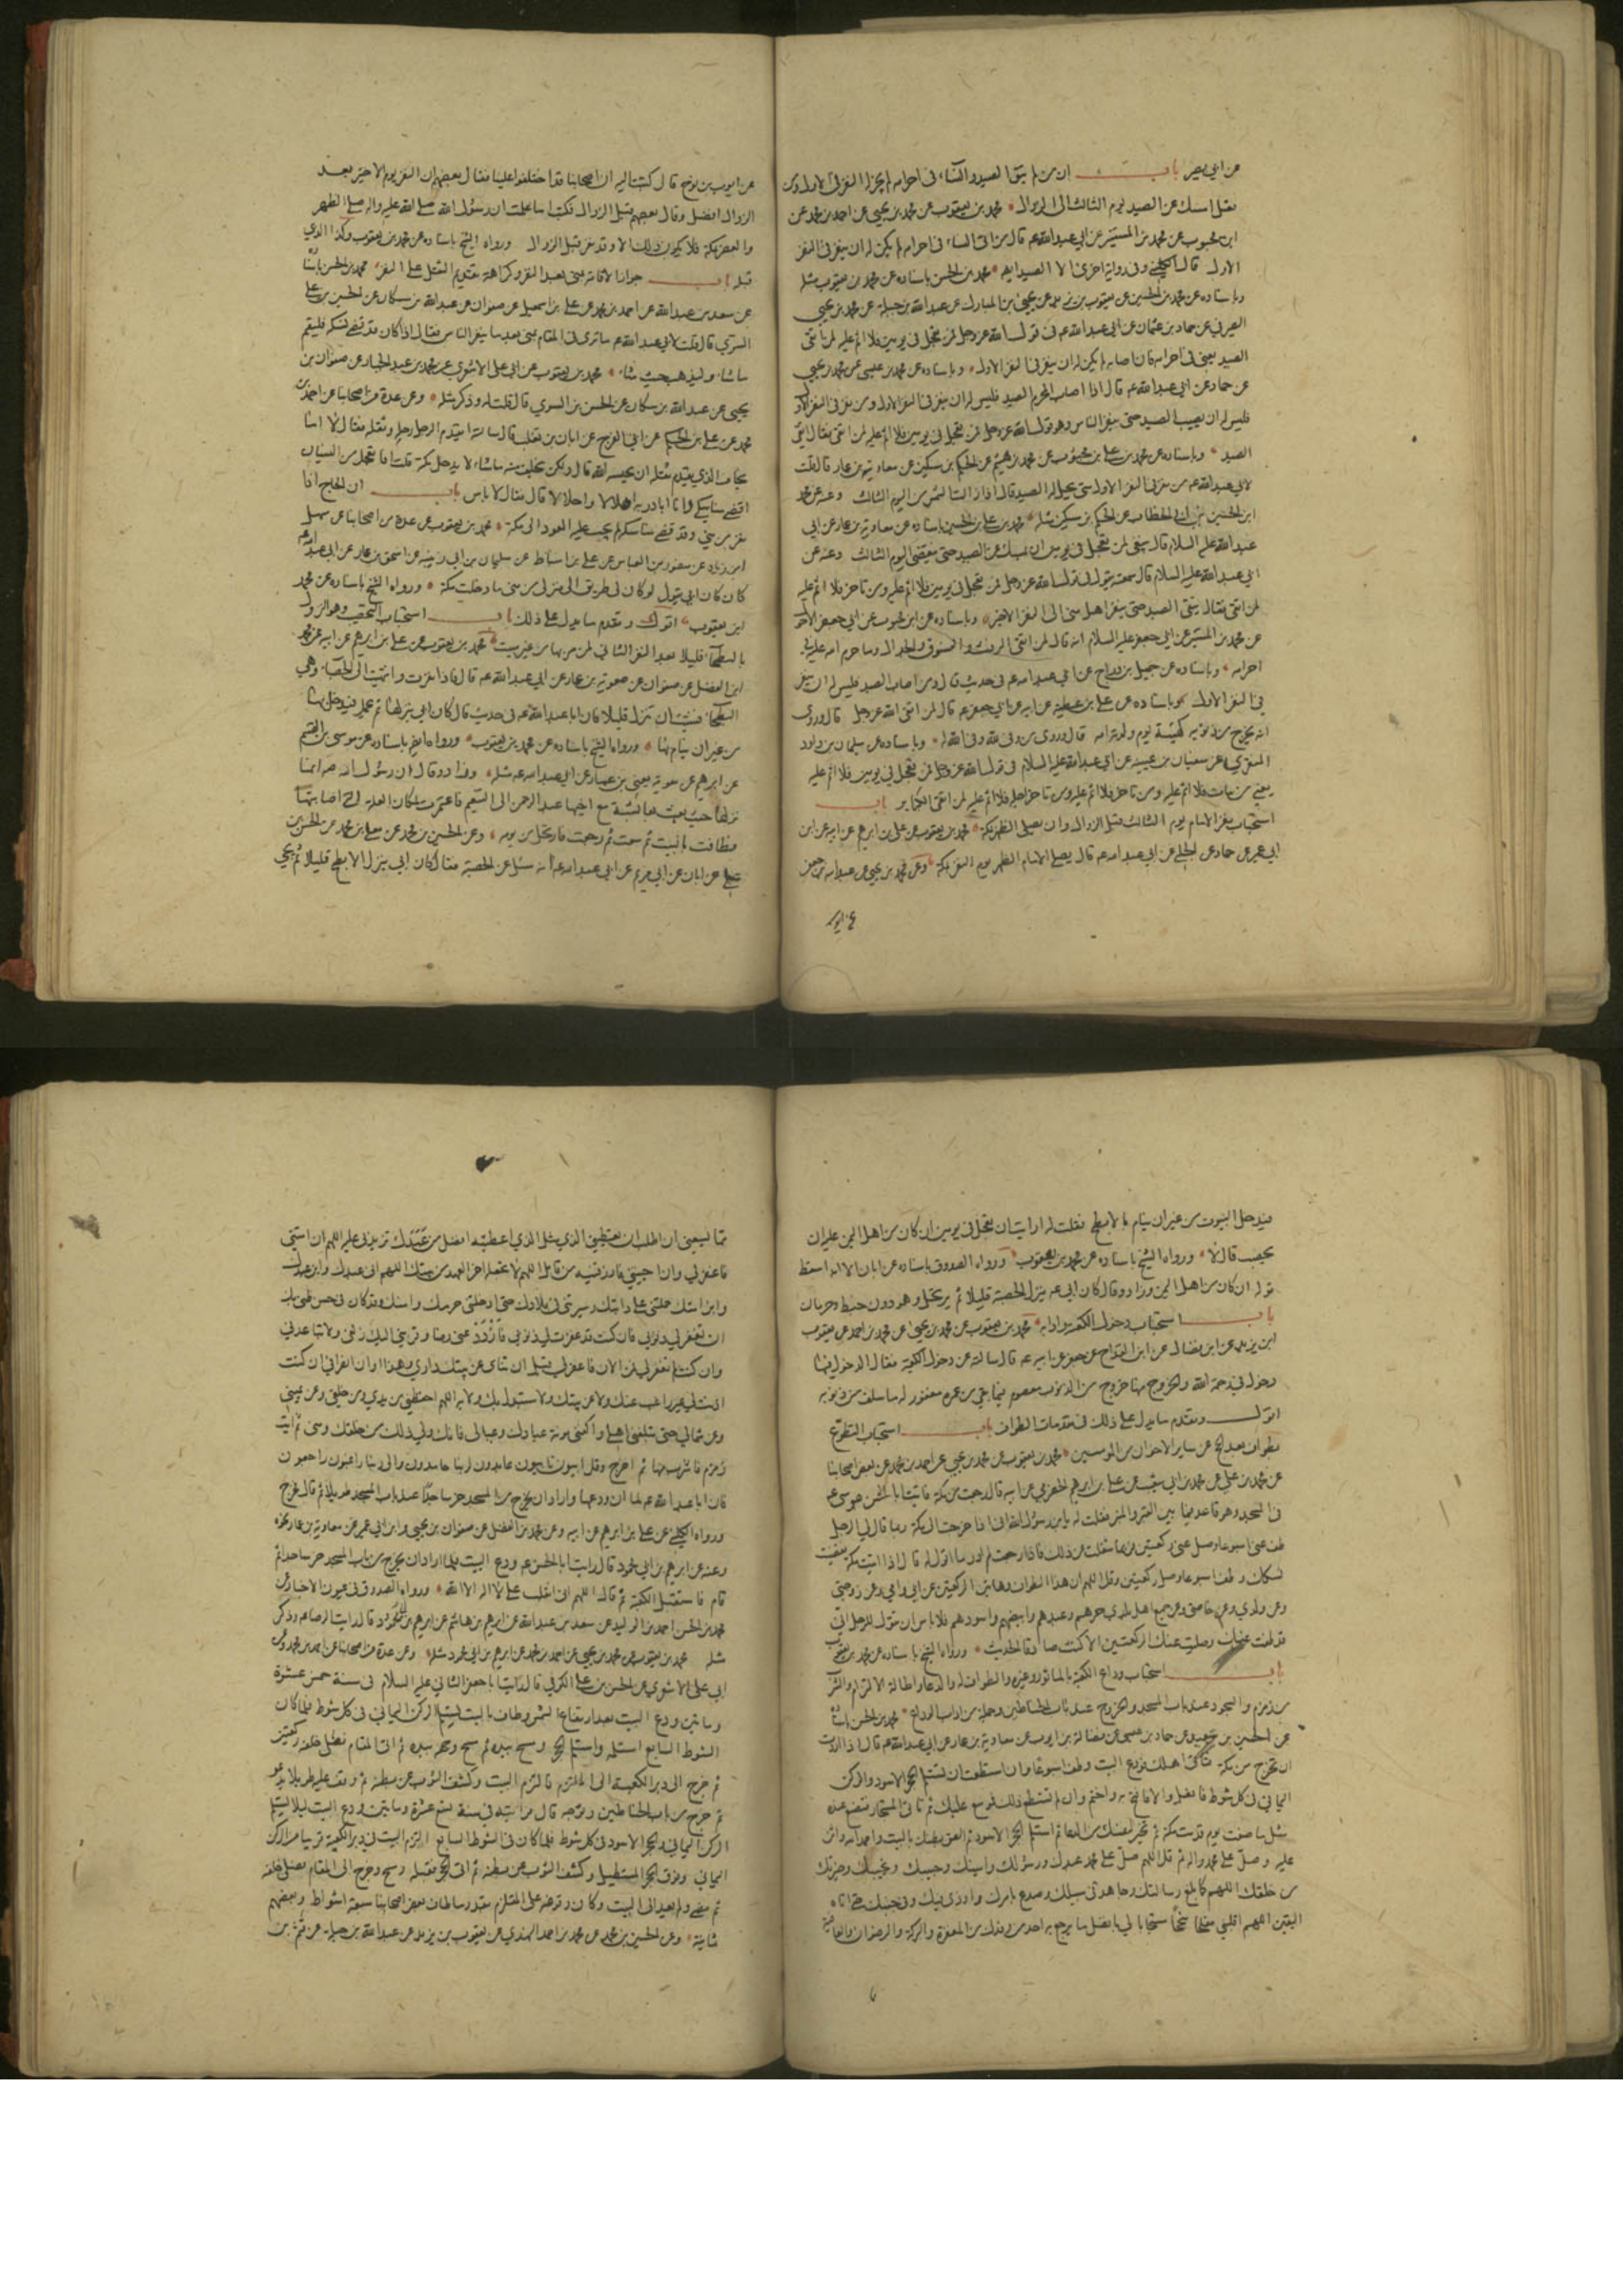 عن ابي بصير باب ان من لم يتق الصيد والنساء في احرامه لم يجز له النفر في الاول ومن
نفل امسك عن الصيد يوم الثالث الى الزوال محمد بن يعقوب عن محمد بن يحيى عن احمد بن محمد عن
ابن محبوب عن محمد بن المستنير عن ابي عبد الله ع قال من اتى النساء في احرامه لم يكن له ان ينفر في النفر
الاول قال الكليني وفي رواية اخرى الا الصيد ايضا محمد بن الحسن باسناده عن محمد بن يعقوب مثله
وباسناده عن محمد بن الحسين عن يعقوب بن يزيد عن يحيى بن المبارك عن عبد الله بن جبلة عن محمد بن يحيى
الصيرفي عن حماد بن عثمان عن ابي عبد الله ع في قول الله عز وجل فمن تعجل في يومين فلا اثم عليه لمن اتقى
الصيد يعني في احرامه فان اصابه لم يكن له ان ينفر في النفر الاول وباسناده عن محمد بن عيسى عن محمد بن يحيى
عن حماد عن ابي عبد الله ع قال اذا اصاب المحرم الصيد فليس له ان ينفر في النفر الاول ومن نفر في النفر الاول
فليس له ان يصيب الصيد حتى ينفر الناس وهو قول الله عز وجل فمن تعجل في يومين فلا اثم عليه لمن اتقى فقال اتقى
الصيد وباسناده عن محمد بن علي بن محبوب عن محمد بن هيثم عن الحكم بن مسكين عن معاوية بن عمار قال قلت
لابي عبد الله ع من نفر في النفر الاول متى يحل له الصيد قال اذا زالت الشمس من اليوم الثالث وعنه عن محمد
ابن الحسين بن ابي الخطاب عن الحكم بن مسكين مثله محمد بن علي بن الحسين باسناده عن معاوية بن عمار عن ابي
عبد الله عليه السلام قال ينبغي لمن تعجل في يومين ان يمسك عن الصيد حتى ينقضي اليوم الثالث وعنه عن
ابي عبد الله عليه السلام قال سمعته يقول في قول الله عز وجل فمن تعجل في يومين فلا اثم عليه ومن تاخر فلا اثم عليه
لمن اتقى فقال يتقى الصيد حتى ينفر اهل منى الى النفر الاخير وباسناده عن ابن محبوب عن ابي جعفر الاحول
عن محمد بن المستنير عن ابي جعفر عليه السلام انه قال لمن اتقى الرفث والفسوق والجدال وما حرم الله عليه في
احرامه وباسناده عن جميل بن دراج عن ابي عبد الله ع في حديث قال ومن اصاب الصيد فليس له ان ينفر
في النفر الاول وباسناده عن علي بن عطية عن ابيه عن ابي جعفر ع قال لمن اتقى الله عز وجل قال وروي
انه يخرج من ذنوبه كهيئة يوم ولدته امه قال وروي من وفى لله وفى الله له وباسناده عن سليمان بن داود
المنقري عن سفيان بن عيينة عن ابي عبد الله عليه السلام في قول الله عز وجل فمن تعجل في يومين فلا اثم عليه
يعني من مات فلا اثم عليه ومن تاخر فلا اثم عليه ومن تاخر اجله فلا اثم عليه لمن اتقى الكبائر باب
استحباب نفر الامام يوم الثالث قبل الزوال وان يصلي الظهر بمكة محمد بن يعقوب عن علي بن ابراهيم عن ابيه عن ابن
ابي عمير عن حماد عن الحلبي عن ابي عبد الله ع قال يصلي الامام الظهر يوم النفر بمكة وعن محمد بن يحيى عن عبد الله بن جعفر
عن ايوب
عن ايوب بن نوح قال كتبت اليه ان اصحابنا قد اختلفوا علينا فقال بعضهم ان النفر يوم الاخير بعد
الزوال افضل وقال بعضهم قبل الزوال فكتب اما علمت ان رسول الله صلى الله عليه واله صلى الظهر
والعصر بمكة فلا يكون ذلك الا وقد نفر قبل الزوال ورواه الشيخ باسناده عن محمد بن يعقوب وكذا الذي
قبله باب جواز الاقامة بمنى بعد النفر وكراهة تقديم الثقل على النفر محمد بن الحسن باسناده
عن سعد بن عبد الله عن احمد بن محمد عن علي بن اسمعيل عن صفوان عن عبد الله بن مسكان عن الحسن بن علي
السري قال قلت لابي عبد الله ع ما ترى في المقام بمنى بعد ما ينفر الناس فقال اذا كان قد قضى نسكه فليقم
ما شاء وليذهب حيث شاء محمد بن يعقوب عن ابي علي الاشعري عن محمد بن عبد الجبار عن صفوان بن
يحيى عن عبد الله بن مسكان عن الحسن بن السري قال قلت له وذكر مثله وعن عدة من اصحابنا عن احمد بن
محمد عن علي بن الحكم عن ابي الفرج عن ابان بن تغلب قال سالته ايقدم الرجل رحله وثقله فقال لا اما
يخاف الذي يقدم ثقله ان يحبسه الله قال ولكن يخلف منه ما شاء لا يدخل مكة قلت افاتعجل من النسيان
اقضي مناسكي وانا ابادر به اهلالا واحلالا قال فقال لا باس باب ان الحاج اذا
نفر من منى وقد قضى مناسكه لم يجب عليه العود الى مكة محمد بن يعقوب عن عدة من اصحابنا عن سهل
ابن زياد عن منصور بن العباس عن علي بن اسباط عن سليمان بن ابي زينبه عن اسحق بن عمار عن ابي عبد الله ع
كان كان ابي يقول لو كان لي طريق الى منزلي من منى ما دخلت مكة ورواه الشيخ باسناده عن محمد
ابن يعقوب اقول وتقدم ما يدل على ذلك باب استحباب التحصيب وهو النزول
بالبطحاء قليلا بعد النفر الثاني لمن مر بها من غير مبيت محمد بن يعقوب عن علي بن ابراهيم عن ابيه عن محمد
ابن الفضل عن صفوان عن معوية بن عمار عن ابي عبد الله ع قال فاذا نفرت وانتهيت الى الحصباء وهي
البطحاء فشئت ان تنزل قليلا فان ابا عبد الله ع في حديث قال كان ابي ينزلها ثم يحمل فيدخل مكة
من غير ان ينام بها ورواه الشيخ باسناده عن محمد بن يعقوب ورواه ايضا باسناده عن موسى بن القسم
عن ابراهيم عن معوية يعني بن عمار عن ابي عبد الله ع مثله وزاد وقال ان رسول الله ص انما
نزلها حيث بعث بعائشة مع اخيها عبد الرحمن الى التنعيم فاعتمرت لمكان العلة التي اصابتها
فطافت بالبيت ثم سعت ثم رجعت فارتحل من يومه وعن الحسين بن محمد عن معلى بن محمد عن الحسن بن
علي عن ابان عن ابي مريم عن ابي عبد الله ع انه سئل عن الحصبة فقال كان ابي ينزل الابطح قليلا ثم يجي
فيدخل البيوت من غير ان ينام بالابطح فقلت له ارايت ان تعجل في يومين ان كان من اهل اليمن عليه ان
يحصب قال لا ورواه الشيخ باسناده عن محمد بن يعقوب ورواه الصدوق باسناده عن ابان الا انه اسقط
قوله ان كان من اهل اليمن وزاد وقال كان ابي ع ينزل الحصبة قليلا ثم يرتحل وهو دون خبط وحرمان
باب استحباب دخول الكعبة وادابه محمد بن يعقوب عن محمد بن يحيى عن محمد بن احمد عن يعقوب
ابن يزيد عن ابن فضال عن ابن القداح عن جعفر عن ابيه ع قال سالته عن دخول الكعبة فقال الدخول فيها
دخول في رحمة الله والخروج منها خروج من الذنوب معصوم فيما بقي من عمره مغفور له ما سلف من ذنوبه
اقول وتقدم ما يدل على ذلك في مقدمات الطواف باب استحباب التطوع
بطواف بعد الحج عن سائر الاخوان من المؤمنين محمد بن يعقوب عن محمد بن يحيى عن احمد بن محمد عن بعض اصحابنا
عن محمد بن علي عن محمد بن ابي شعيب عن علي بن ابراهيم الحضرمي عن ابيه قال رجعت من مكة فاتيت ابا الحسن موسى ع
في المسجد وهو قاعد فيما بين القبر والمنبر فقلت له يا ابن رسول الله اني اذا خرجت الى مكة ربما قال لي الرجل
طف عني اسبوعا وصل عني ركعتين فربما شغلت عن ذلك فاذا رجعت لم ادر ما اقول له قال اذا اتيت مكة فقضيت
نسكك وطف اسبوعا وصل ركعتين وقل اللهم ان هذا الطواف وهاتين الركعتين عن ابي وامي وعن زوجتي
وعن ولدي وعن حامتي وعن جميع اهل بلدي حرهم وعبدهم وابيضهم واسودهم فلا باس ان تقول للرجل اني
قد طفت عنك وصليت عنك الركعتين الا كنت صادقا الحديث ورواه الشيخ باسناده عن محمد بن يعقوب
باب استحباب وداع الكعبة بالماثور وغيره والطواف له والدعاء واطالة الالتزام والشرب
من زمزم والسجود عند باب المسجد والخروج عند باب الحناطين وجملة من اداب الوداع محمد بن الحسن باسناده
عن الحسين بن سعيد عن حماد بن عيسى عن فضالة بن ايوب عن معاوية بن عمار عن ابي عبد الله ع قال اذا اردت
ان تخرج من مكة فتاتي اهلك فودع البيت وطف اسبوعا وان استطعت ان تستلم الحجر الاسود والركن
اليماني في كل شوط فافعل والا فافتح به واختم وان لم تستطع ذلك فموسع عليك ثم تاتي المستجار فتصنع عنده
مثل ما صنعت يوم قدمت مكة ثم تخير لنفسك من الدعاء ثم استلم الحجر الاسود ثم الصق بطنك بالبيت واحمد الله واثن
عليه وصل على محمد واله ثم قل اللهم صل على محمد عبدك ورسولك وامينك وحبيبك ونجيبك وخيرتك
من خلقك اللهم كما بلغ رسالتك وجاهد في سبيلك وصدع بامرك واوذي فيك وفي جنبك حتى اتاه
اليقين اللهم اقلبني مفلحا منجحا مستجابا لي بافضل ما يرجع به احد من وفدك من المغفرة والبركة والرضوان والعافية
مما يسعني ان اطلب ان تعطيني الذي مثل الذي اعطيته افضل من عبدك تزيدني عليه اللهم ان امتني
فاغفر لي وان احييتني فارزقنيه من قابل اللهم لا تجعله اخر العهد من بيتك اللهم اني عبدك وابن عبدك
وابن امتك حملتني على دابتك وسيرتني في بلادك حتى ادخلتني حرمك وامنك وقد كان في حسن ظني بك
ان تغفر لي ذنوبي فان كنت قد غفرت لي ذنوبي فازدد عني رضا وقربني اليك زلفى ولا تباعدني
وان كنت لم تغفر لي فمن الان فاغفر لي قبل ان تناى عن بيتك داري وهذا اوان انصرافي ان كنت
اذنت لي غير راغب عنك ولا عن بيتك ولا مستبدل بك ولا به اللهم احفظني من بين يدي ومن خلفي وعن يميني
وعن شمالي حتى تبلغني اهلي واكفني مونة عبادك وعيالي فانك ولي ذلك من خلقك ومني ثم ائت
زمزم فاشرب منها ثم اخرج وقل ائبون تائبون عابدون لربنا حامدون والى ربنا راغبون راجعون
فان ابا عبد الله ع لما ان ودعها واراد ان يخرج من المسجد خر ساجدا عند باب المسجد طويلا ثم قام فخرج
ورواه الكليني عن علي بن ابراهيم عن ابيه وعن محمد بن الفضل عن صفوان بن يحيى وابن ابي عمير عن معاوية بن عمار نحوه
وعنه عن ابراهيم بن ابي محمود قال رايت ابا الحسن ع ودع البيت فلما اراد ان يخرج من باب المسجد خر ساجدا ثم
قام فاستقبل الكعبة ثم قال اللهم اني انقلب على لا اله الا الله ورواه الصدوق في عيون الاخبار عن
محمد بن الحسن احمد بن الوليد عن سعد بن عبد الله عن ابراهيم بن هاشم عن ابراهيم بن محمود قال رايت الرضا ع وذكر
مثله محمد بن يعقوب عن محمد بن يحيى عن احمد بن محمد عن ابراهيم بن ابي محمود مثله وعن عدة من اصحابنا عن احمد بن محمد وعن
ابي علي الاشعري عن الحسن بن علي الكوفي قال رايت ابا جعفر الثاني عليه السلام في سنة خمس عشرة
ومايتين ودع البيت بعد ارتفاع الشمس وطاف بالبيت يستلم الركن اليماني في كل شوط فلما كان
الشوط السابع استلمه واستلم الحجر ومسح بيده ثم مسح وجهه بيده ثم اتى المقام فصلى خلفه ركعتين
ثم خرج الى دبر الكعبة الى الملتزم فالتزم البيت وكشف الثوب عن بطنه ثم وقف عليه طويلا يدعو
ثم خرج من باب الحناطين وتوجه قال فرايته في سنة تسع عشرة ومايتين ودع البيت ليلا يستلم
الركن اليماني والحجر الاسود في كل شوط فلما كان في الشوط السابع التزم البيت في دبر الكعبة قريبا من الركن
اليماني وفوق الحجر المستطيل وكشف الثوب عن بطنه ثم اتى الحجر فقبله ومسح وخرج الى المقام فصلى خلفه
ثم مضى ولم يعد الى البيت وكان وقوفه على الملتزم بقدر ما طاف بعض اصحابنا سبعة اشواط وبعضهم
ثمانية وعن الحسين بن محمد عن محمد بن احمد النهدي عن يعقوب بن يزيد عن عبد الله بن جبلة عن قثم بن